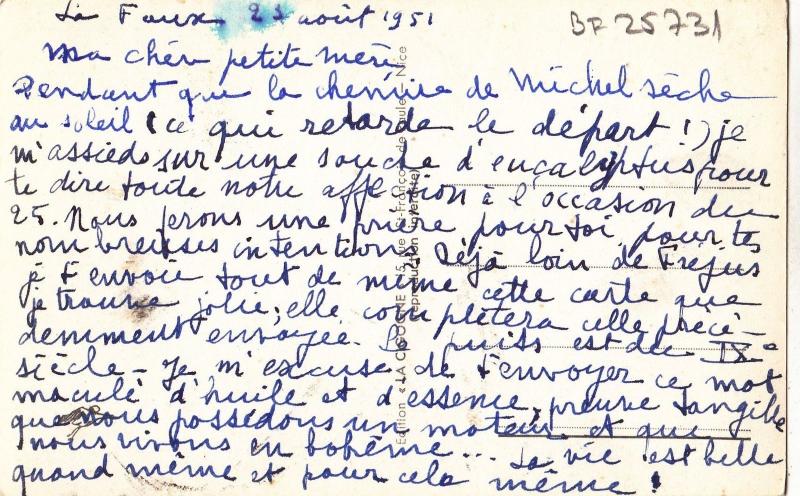 La Faux 23 août 1951
BF 25731
Ma chère petite mère
Pendant que la chemise de Michel sèche
au soleil (ce qui retarde le départ !) je
m'assieds sur une souche d'eucalyptus pour
te dire toute notre affection à l'occasion du
25. Nous ferons une prière pour toi, pour tes
nombreuses intentions. Déjà loin de Fréjus
je t'envoie tout de même cette carte que
je trouve jolie, elle complètera celle précé-
demment envoyée. Le puits est du IXe
siècle - Je m'excuse de t'envoyer ce mot
maculé d'huile et d'essence, preuve tangible
que nous possédons un moteur et que
nous vivons en bohême... La vie est belle
quand même et pour cela même !
Edition « LA CIGOGNE » 5, Rue St-François de Paule, Nice
(reproduction interdite)